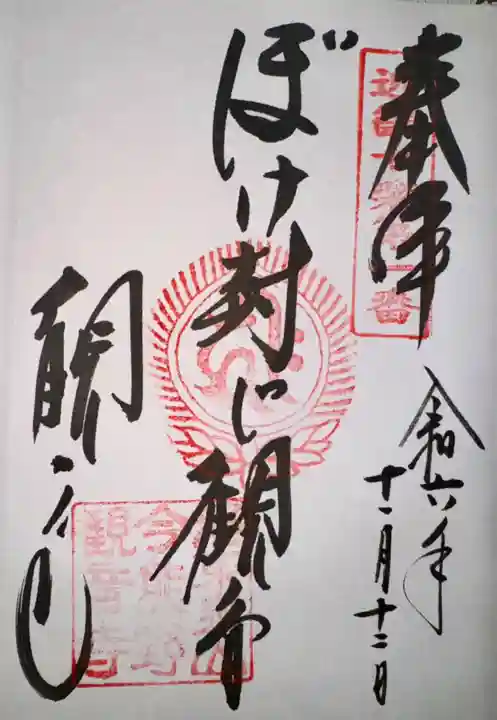 奉拝
令和六年
十一月十二日
ぼけ封じ観音
観音寺
今熊野
観音寺